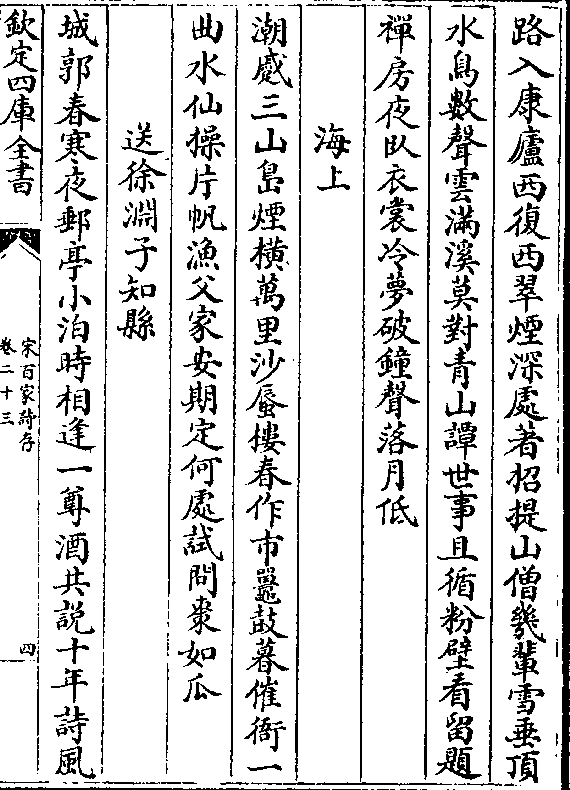 路入康廬西復西翠煙深處著招提山僧幾輩雪垂頂
水鳥數聲雲滿溪莫對青山譚世事且循粉壁看留題
禪房夜臥衣裳冷夢破鐘聲落月低
海上
潮蹙三山島煙橫萬里沙蜃樓春作市鼉鼓暮催衙一
曲水仙操片帆漁父家安期定何處試問棗如瓜
送徐淵子知縣
城郭春寒夜郵亭小泊時相逢一尊酒共説十年詩風
欽定四庫全書
宋百家詩存
卷二十三
四